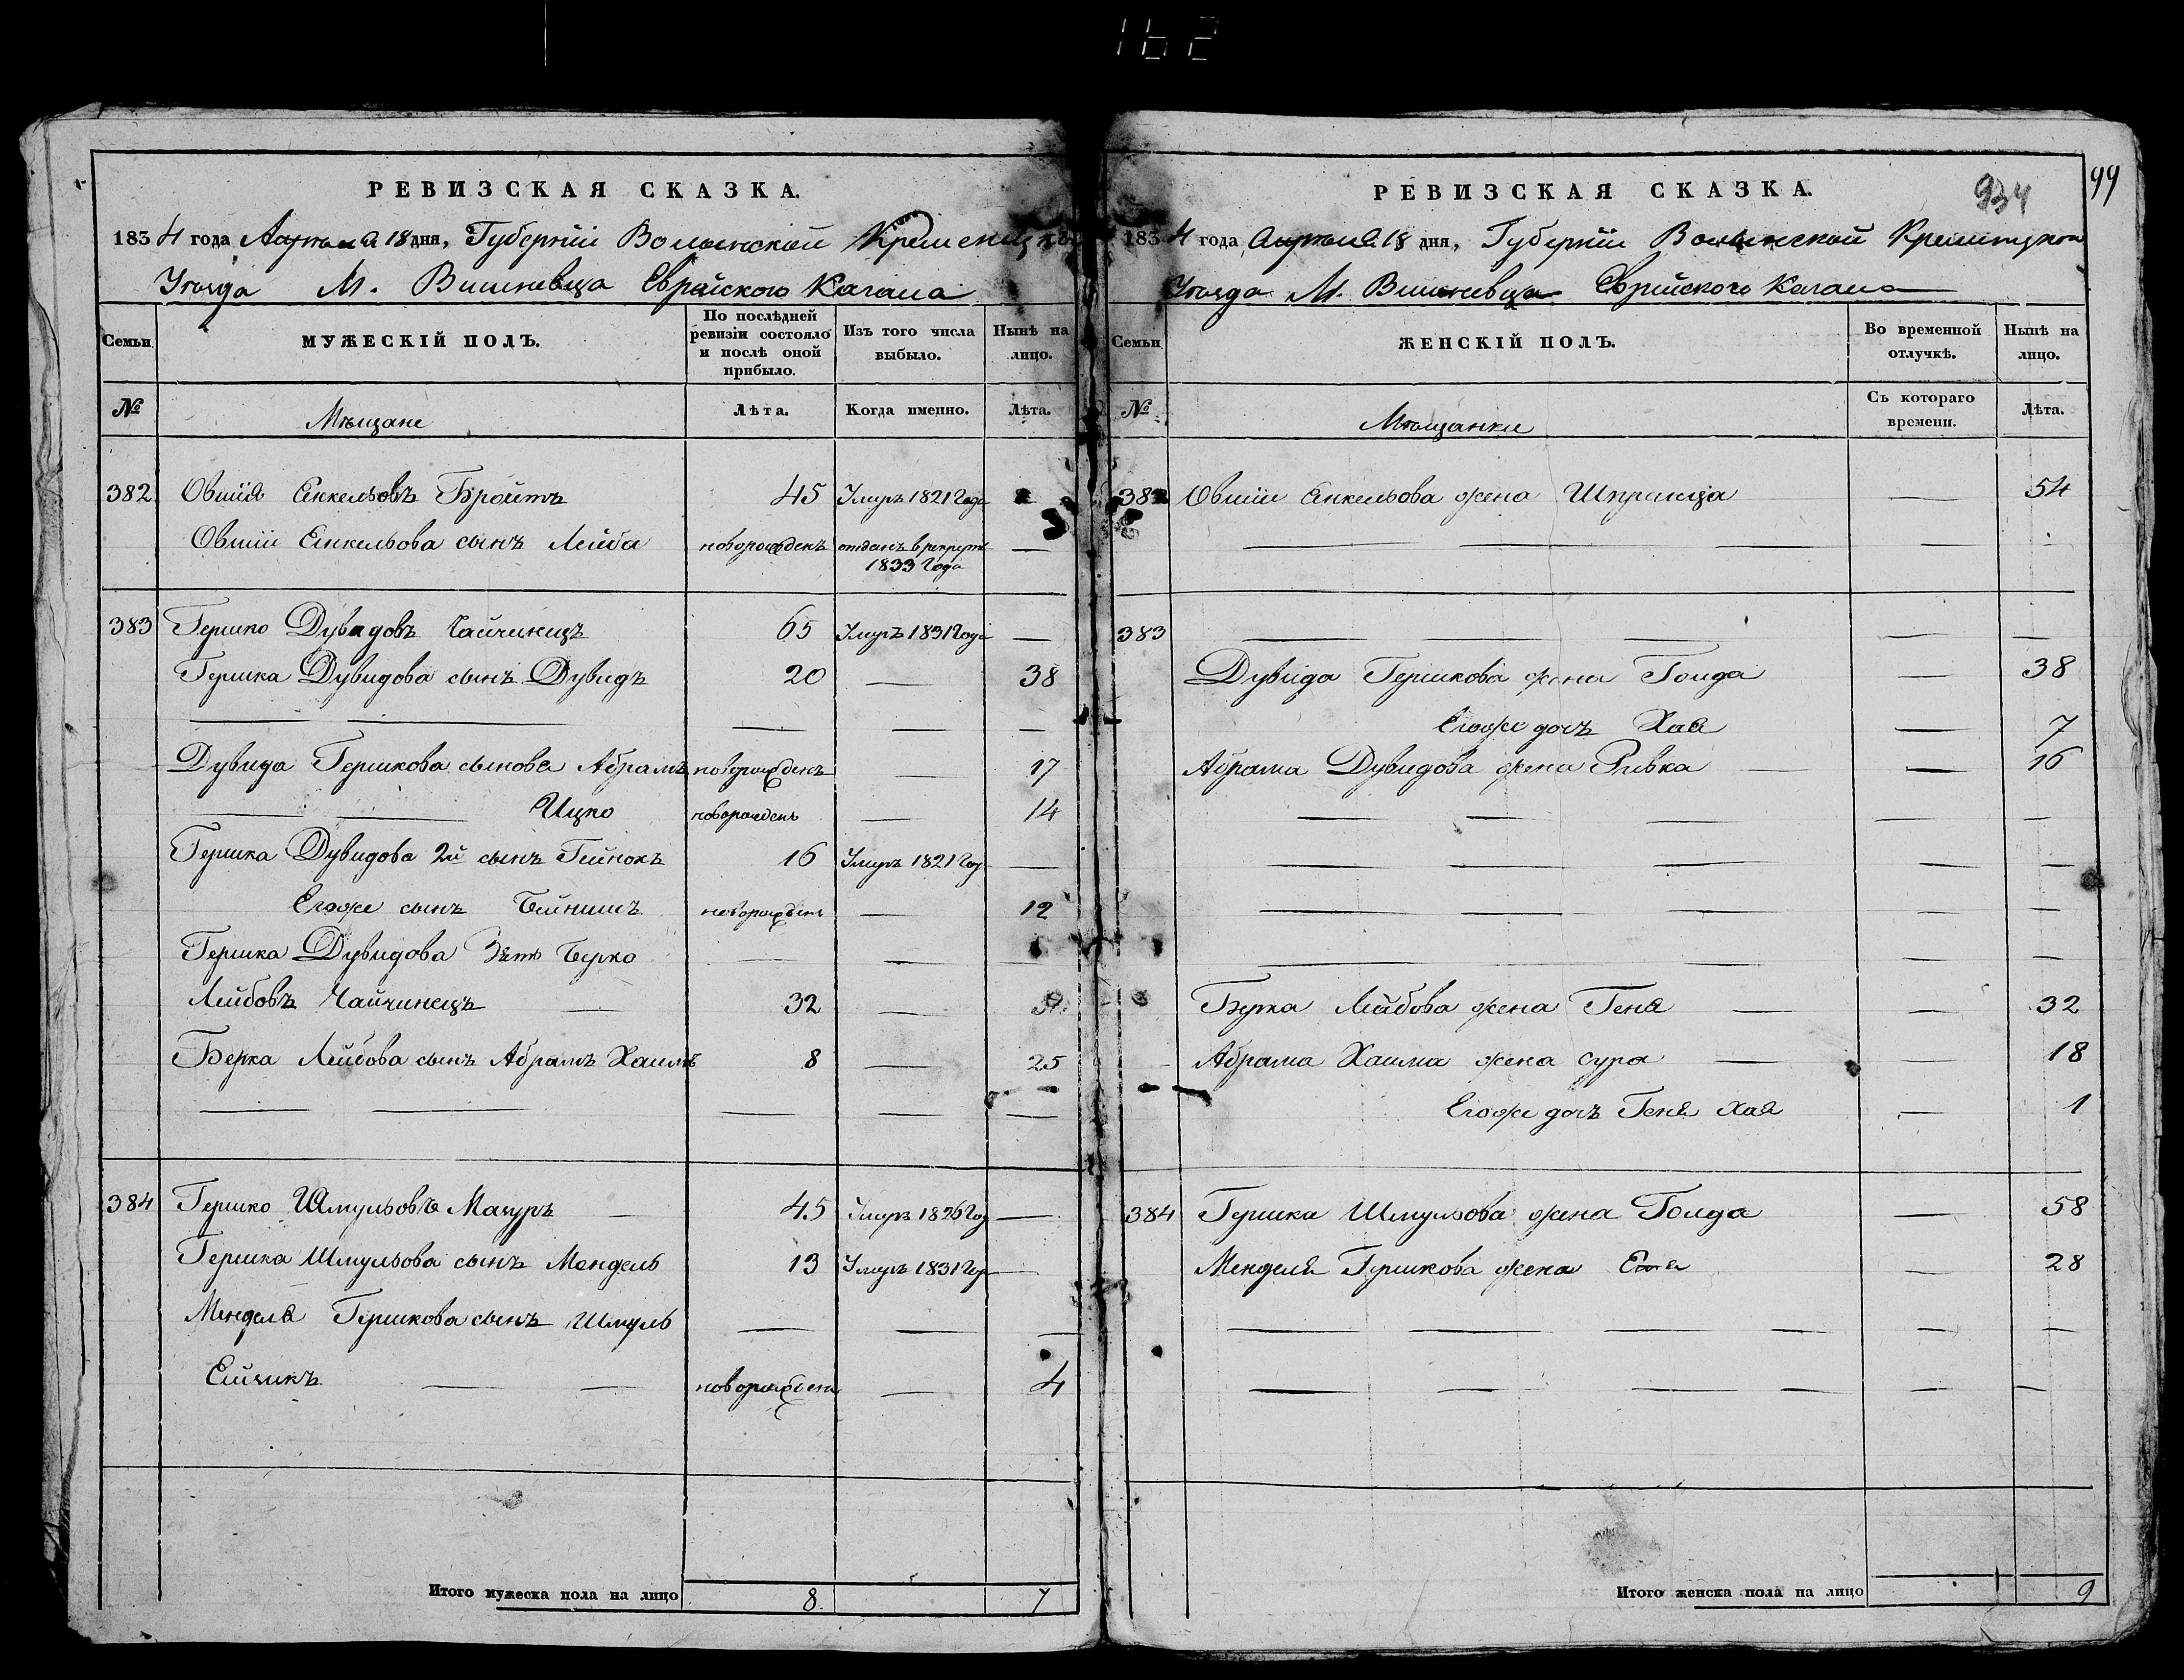 162
РЕВИЗСКАЯ СКАЗКА.
1834 года Апреля 18 дня, Губерніи Волынской Кременецкой
Уезда М. Вишневца Еврейского Кагала
Семьи
МУЖЕСКІЙ ПОЛЪ.
По послѣдней ревизіи состояло и послѣ оной прибыло.
Изъ того числа выбыло.
Нынѣ на лицо.
№
Мѣщане
Лѣта.
Когда именно.
Лѣта.
382 Овшія Енкельовъ Бройтъ 45 Умеръ 1821 Года
Овшіи Енкельова сынъ Лейба новорожденъ отданъ в рекруты —
1833 Года
383 Гершко Дувидовъ Чайчинецъ 65 Умеръ 1831 Года —
Гершка Дувидова сынъ Дувидъ 20 — 38
— — — — —
Дувида Гершкова сынова Абрамъ новорожденъ — 17
— — Ицко новорожденъ — 14
Гершка Дувидова 2й сынъ Гейнохъ 16 Умеръ 1821 Год —
Егоже сынъ Бейнишъ новорожденъ — 12
Гершка Дувидова Зять Берко — — —
Лейбовъ Чайчинецъ — 32 —
Берка Лейбова сынъ Абрамъ Хаимъ 8 — 25
— — — — —
384 Гершко Шмульовъ Мазуръ — 45 Умеръ 1826 Год —
Гершка Шмульова сынъ Мендель 13 Умеръ 1831 Год —
Менделя Гершкова сынъ Шмуль — — —
Ейзикъ — — новорожденъ — 4
Итого мужеска пола на лицо 8. 7
99
934
РЕВИЗСКАЯ СКАЗКА.
1834 года Апреля 18 дня, Губерніи Волынской Кременецкой
Уезда М. Вишневца Еврейского Кагала
Семьи
ЖЕНСКІЙ ПОЛЪ.
Во временной отлучкѣ.
Нынѣ на лицо.
№
Мѣщанки
Съ котораго времени.
Лѣта.
382 Овшіи Енкельова жена Шпринца — 54
— — — — —
383 — — — — —
Дувида Гершкова жена Голда — 38
Егоже дочъ Хая — 7
Абрама Дувидова жена Ривка — — 16
— — — — —
— — — — —
— — — — —
— — — — —
Берка Лейбова жена Геня — — 32
Абрама Хаима жена Сура — — 18
Егоже дочъ Геня Хая — 1
384 Гершка Шмульова жена Голда — 58
Менделя Гершкова жена — 28
— — — — — —
— — — — — —
Итого женска пола на лицо 9